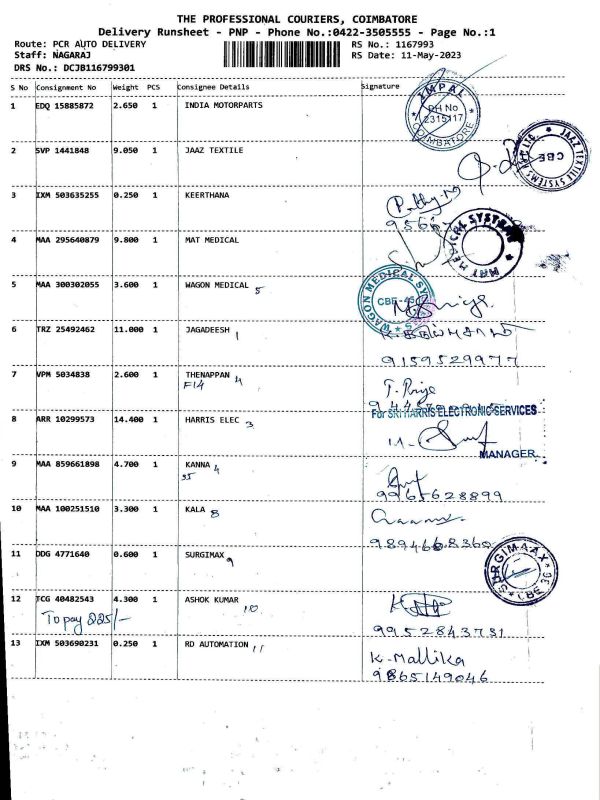 THE PROFESSIONAL COURIERS, COIMBATORE
Delivery Runsheet - PNP - Phone No.:0422-3505555 - Page No.:1
Route: PCR AUTO DELIVERY RS No.: 1167993
Staff: NAGARAJ RS Date: 11-May-2023
DRS No.: DCJB116799301
S No Consignment No Weight PCS Consignee Details Signature
1 EDQ 15885872 2.650 1 INDIA MOTORPARTS
IMPAL
PH No
2315117
COIMBATORE
2 SVP 1441848 9.050 1 JAAZ TEXTILE
JAAZ TEXTILE SYSTEMS
CBE
3 IXM 503635255 0.250 1 KEERTHANA
4 MAA 295640879 9.800 1 MAT MEDICAL
MAT MEDICAL SYSTEMS
5 MAA 300302055 3.600 1 WAGON MEDICAL 5
WAGON MEDICAL
CBE
6 TRZ 25492462 11.000 1 JAGADEESH 1
9159529977
7 VPM 5034838 2.600 1 THENAPPAN 4
F14
T. Priya
8 ARR 10299573 14.400 1 HARRIS ELEC 3
For SRI HARRIS ELECTRONIC SERVICES
MANAGER
9 MAA 859661898 4.700 1 KANNA 4
35
9965628899
10 MAA 100251510 3.300 1 KALA 8
9894608360
11 DDG 4771640 0.600 1 SURGIMAX 9
SURGIMAAX
CBE
12 TCG 40482543 4.300 1 ASHOK KUMAR 10
To pay 225/-
9952843731
13 IXM 503690231 0.250 1 RD AUTOMATION 11
K. Mallika
9865149046